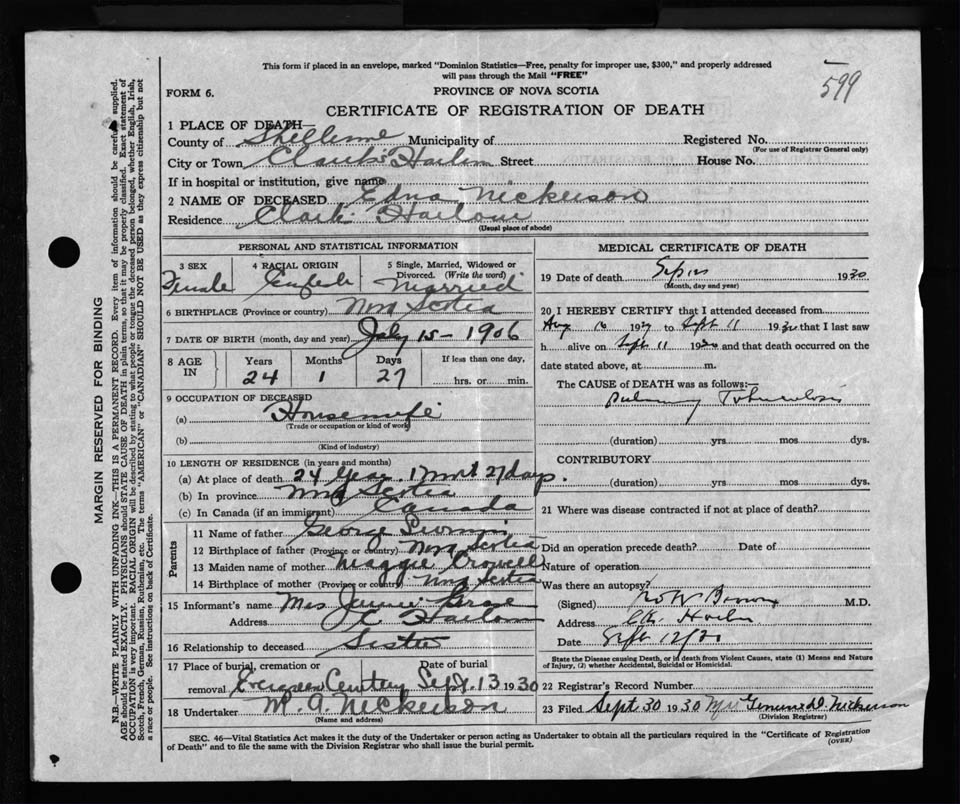 This form if placed in an envelope, marked "Dominion Statistics—Free, penalty for improper use, $300," and properly addressed
will pass through the Mail "FREE"
599
FORM 6.
PROVINCE OF NOVA SCOTIA
CERTIFICATE OF REGISTRATION OF DEATH
1 PLACE OF DEATH—
County of Shelburne Municipality of Registered No.
(For use of Registrar General only)
City or Town Clark's Harbour Street House No.
If in hospital or institution, give name
2 NAME OF DECEASED Edna Nickerson
Residence Clark's Harbour
(Usual place of abode)
PERSONAL AND STATISTICAL INFORMATION
3 SEX Female
4 RACIAL ORIGIN English
5 Single, Married, Widowed or Divorced. (Write the word) Married
6 BIRTHPLACE (Province or country) Nova Scotia
7 DATE OF BIRTH (month, day and year) July 15 - 1906
8 AGE IN Years 24 Months 1 Days 27 If less than one day, hrs. or min.
9 OCCUPATION OF DECEASED
(a) Housewife
(Trade or occupation or kind of work)
(b)
(Kind of industry)
10 LENGTH OF RESIDENCE (in years and months)
(a) At place of death 24 Years 1 Mnt 27 days.
(b) In province Nova Scotia
(c) In Canada (if an immigrant) Canada
Parents
11 Name of father George
12 Birthplace of father (Province or country) Nova Scotia
13 Maiden name of mother Maggie Crowell
14 Birthplace of mother (Province or country) Nova Scotia
15 Informant's name Mrs Jennie
Address C. Harbour
16 Relationship to deceased Sister
17 Place of burial, cremation or removal Cemetery Date of burial Sept. 13 1930
18 Undertaker M. A. Nickerson
(Name and address)
MEDICAL CERTIFICATE OF DEATH
19 Date of death Sep 1930
(Month, day and year)
20 I HEREBY CERTIFY that I attended deceased from
Aug 16 192 to Sept 11 1930 that I last saw
h alive on Sept 11 1930 and that death occurred on the
date stated above, at m.
The CAUSE OF DEATH was as follows:—
Pulmonary Tuberculosis
(duration) yrs mos dys.
CONTRIBUTORY
(duration) yrs mos dys.
21 Where was disease contracted if not at place of death?
Did an operation precede death? Date of
Nature of operation
Was there an autopsy?
(Signed) M.D.
Address Ck. Harbour
Date Sept 12/30
State the Disease causing Death, or in death from Violent Causes, state (1) Means and Nature
of Injury, (2) whether Accidental, Suicidal or Homicidal.
22 Registrar's Record Number
23 Filed Sept 30 1930 Nickerson
(Division Registrar)
SEC. 46—Vital Statistics Act makes it the duty of the Undertaker or person acting as Undertaker to obtain all the particulars required in the "Certificate of Registration
of Death" and to file the same with the Division Registrar who shall issue the burial permit.
(OVER)
MARGIN RESERVED FOR BINDING
N.B.—WRITE PLAINLY WITH UNFADING INK—THIS IS A PERMANENT RECORD. Every item of information should be carefully supplied.
AGE should be stated EXACTLY. PHYSICIANS should STATE CAUSE OF DEATH in plain terms, so that it may be properly classified. Exact statement of
OCCUPATION is very important. RACIAL ORIGIN will be described by stating to what people or tongue the deceased person belonged, whether English, Irish,
Scotch, French, German, Russian, Ruthenian, etc. The terms "AMERICAN" or "CANADIAN" SHOULD NOT BE USED as they express citizenship but not
a race or people. See instructions on back of Certificate.